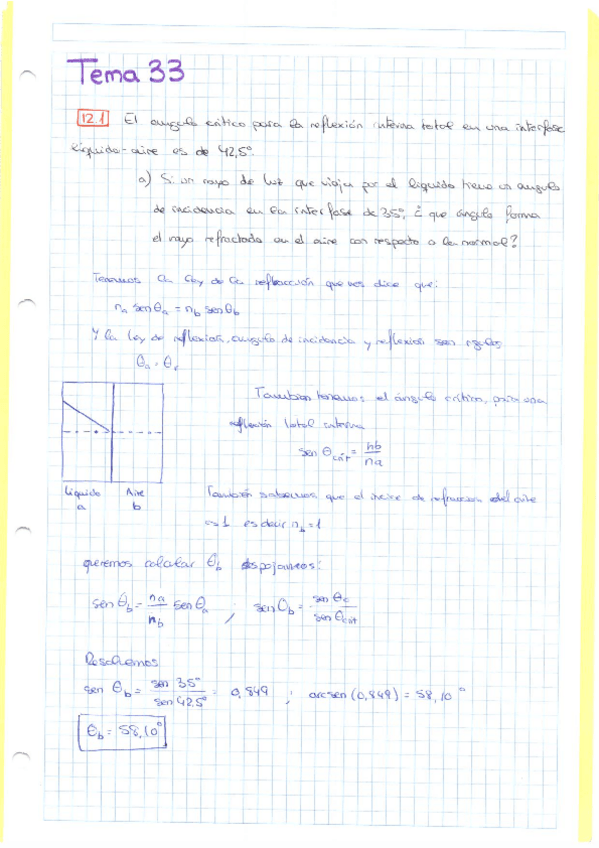 Tema 33
12.1 El angulo crítico para la reflexión interna total en una interfase
líquido-aire es de 42,5°.
a) Si un rayo de luz que viaja por el líquido tiene un angulo
de incidencia en la interfase de 35°, ¿ que ángulo forma
el rayo refractado en el aire con respecto a la normal?
Tenemos la ley de la refracción que nos dice que:
na senθa = nb senθb
Y la ley de reflexion, angulo de incidencia y reflexion son iguales
θa = θr
Tambien tenemos el ángulo crítico, para una
reflexión total interna
sen θcrít = nb/na
Líquido Aire
a b
También sabemos que el índice de refraccion del aire
es 1 es decir nb = 1
queremos calcular θb despejamos:
sen θb = na/nb sen θa , sen θb = sen θc/sen θcrít
Resolvemos
sen θb = sen 35°/sen 42,5° = 0,849 ; arcsen (0,849) = 58,10°
θb = 58,10°